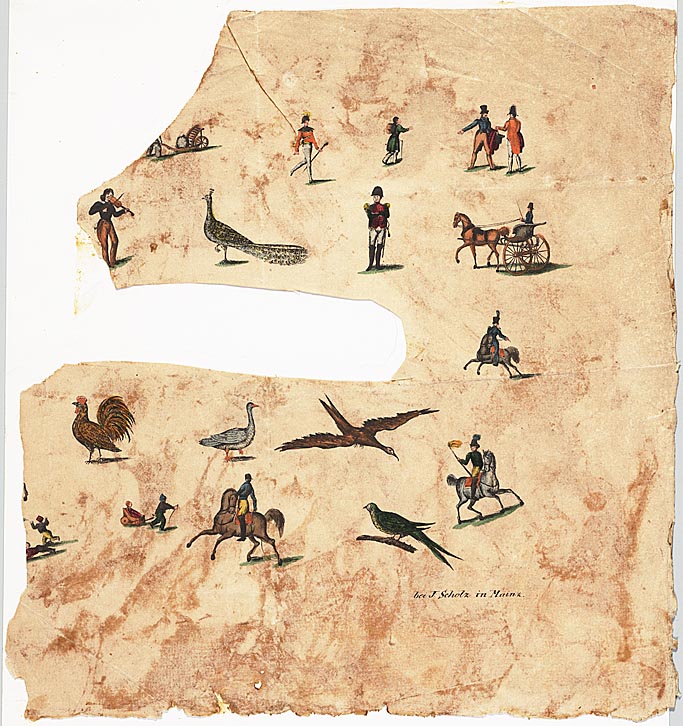 bei J Scholz in Mainz.